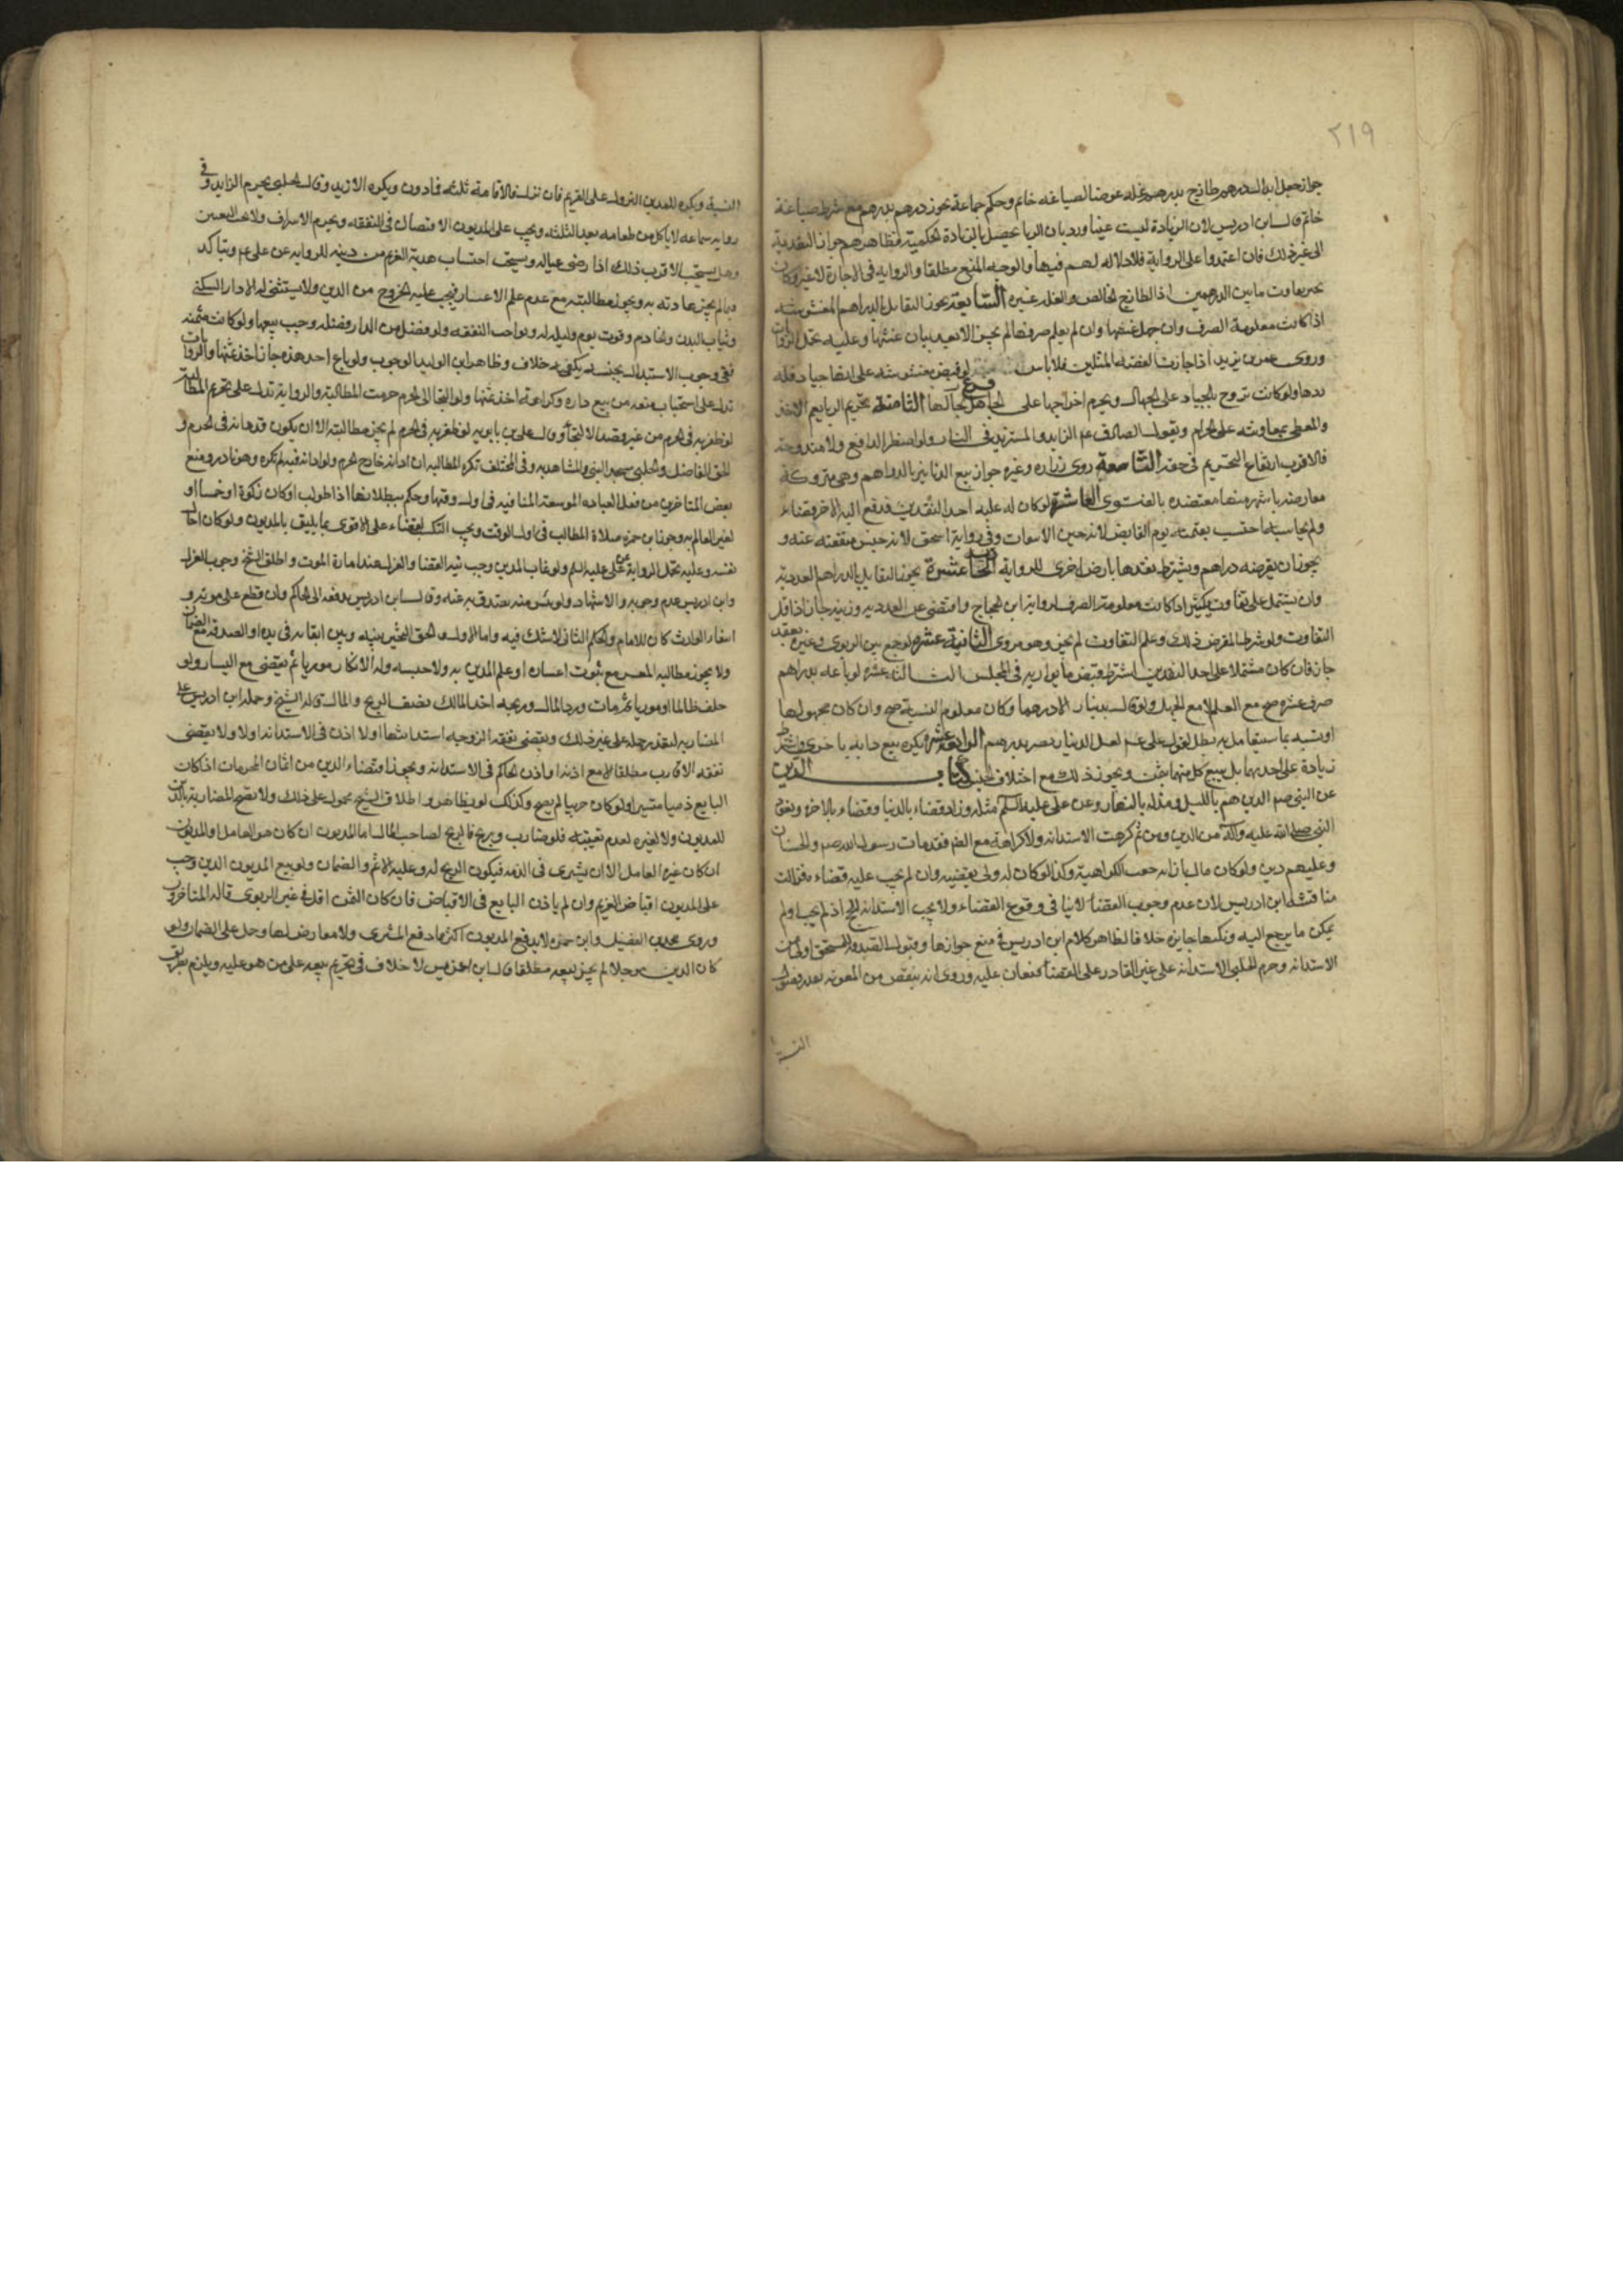 ٢١٩
جواز جعل ابدال درهم طازج بدرهم غلة عوضا لصياغة خاتم وحكم جماعة بجواز درهم بدرهم مع شرط صياغة
خاتم قال ابن ادريس لان الزيادة ليست عينا ورد بان الربا يحصل بالزيادة الحكمية وظاهرهم جواز التعدية
الى غير ذلك فان اعتمدوا على الرواية فلا دلالة لهم فيها والوجه المنع مطلقا والرواية في الاجارة لا غير وكان
تفاوت ما بين الدرهمين اذ الطازج الخالص والغلة غيره السابعة يجوز التقابل بالدراهم المغشوشة
اذا كانت معلومة الصرف وان جهل غشها وان لم يعلم صرفها لم يجز الا بعد بيان غشها وعليه تحمل الروايات
وروى عمر بن يزيد اذا جازت الفضة المثلين فلا باس فرع لو قبض مغشوشة على انها جياد فله
ردها ولو كانت تروج بالجياد على الجهال ويحرم اخراجها على الجاهل بحالها الثامنة تحريم الربا يعم الاخذ
والمعطي لمعاونته على الحرام ولقول الصادق عم الزايد والمستزيد في النار ولو اضطر الدافع ولا مندوحة
فالاقرب ارتفاع التحريم في حقه التاسعة روى زرارة وغيره جواز بيع الدنانير بالدراهم وهي متروكة
معارضة باشهر منها معتضدة بالفتوى العاشرة لو كان له عليه احد النقدين فدفع اليه الاخر قضاء
ولم يحاسبه احتسب بقيمته يوم القابض لانه حين الاسعات وفي رواية اسحق لانه حبس منفعته عنه و
يجوز ان يقرضه دراهم ويشترط نقدها بارض اخرى للرواية الحادية عشرة يجوز التقابل بالدراهم العددية
وان يشتمل على تفاوت يكثر اذا كانت معلومة الصرف لرواية ابن الحجاج ولو اقتضى عن العددية وزنية جاز اذا قل
التفاوت ولو شرط المقرض ذلك وعلم التفاوت لم يجز وهو مروى الثانية عشرة لو جمع بين الربوي وغيره بعقد
جاز فان كان مشتملا على احد النقدين اشترط قبض ما يوازيه في المجلس الثالثة عشرة لو باعه بدراهم
صرف عشرة صح مع العلم لا مع الجهل ولو قال بدينار الا درهما وكان معلوم النسبة صح وان كان مجهولها
او نسبه بما سيتعامل به بطل لقول علي عم لعل الدينار يصير بدرهم الرابعة عشرة يكره بيع دابة باخرى ويشترط
زيادة على احديهما بل يبيع كل منهما بثمن ويجوز ذلك مع اختلاف الجنس كتاب الدين
عن النبي صم الدين هم بالليل ومذلة بالنهار وعن علي عليه السلم مثله وزاد قضاء بالدنيا وقضاء بالاخرة وتعوذ
النبي صلى الله عليه وآله من الدين ومن ثم كرهت الاستدانة ولا كراهة مع الضرر فقد مات رسول الله صم والحسنان
وعليهم دين ولو كان ماليا زالت الكراهية وكذا لو كان له ولي يقضيه وان لم يجب عليه قضاء فزالت
مناقشة ابن ادريس لان عدم وجوب القضاء لا ينافي وقوع القضاء ولا يجب الاستدانة للحج اذ لم يجب ولم
يمكن ما يرجع اليه ولكنها جايزة خلافا لظاهر كلام ابن ادريس في منع جوازها وقبول الصدقة للمستحق اولى من
الاستدانة وحرم الحلبي الاستدانة على غير القادر على القضاء فيعان عليه وروى انه ينقص من المعونة بقدر قصور
النية
النية ويكره للمدين النزول على الغريم فان نزل فالاقامة ثلثة فما دون ويكره الازيد وقال الحلبي يحرم الزايد وفي
رواية سماعة لا ياكل من طعامه بعد الثلثة ويجب على المديون الاقتصاد في النفقة ويحرم الاسراف ولا يجب التضييق
وهل يستحب الاقرب ذلك اذا رضي عياله ويستحب احتساب هدية الغريم من دينه للرواية عن علي عم ويتاكد
فيما لم يجز عادته به ويجوز مطالبته مع عدم علم الاعسار فيجب عليه الخروج من الدين ولا يستثنى له الا دار السكنى
وثياب البدن والخادم وقوت يوم وليلة له ولواجب النفقة ولو فضل من الدار فضلة وجب بيعها ولو كانت ثمينة
ففي وجوب الاستبدال بجنسه يكتفى به خلاف وظاهر ابن الوليد الوجوب ولو باع احد هذه جاز اخذ ثمنها والروايات
تدل على استحباب منعه من بيع داره وكراهة اخذ ثمنها ولو التجا الى الحرم حرمت المطالبة والرواية تدل على تحريم المطالبة
لو ظفر به في الحرم من غير قصد الالتجاء وقال علي بن بابويه لو ظفر به في الحرم لم يجز مطالبته الا ان يكون قد ادانه في الحرم و
الحق القاضي والحلبي مسجد النبي والمشاهد به وفي المختلف تكره المطالبة ان ادانه خارج الحرم ولو ادانه فيه لم تكره وهو نادر ومنع
بعض المتاخرين من فعل العبادة الموسعة المنافية في اول وقتها وحكم ببطلانها اذا طولب او كان زكوة او خمسا او
لغير العالم به وجوز ابن حمزة صلاة المطالب في اول الوقت ويجب التكسب لقضاء على الاقوى بما يليق بالمديون ولو كان اجارة
نفسه وعليه تحمل الرواية عن علي عليه السلم ولو غاب المدين وجب نية القضا والعزل عند امارة الموت واطلق الشيخ وجوب العزل
وابن ادريس عدم وجوبه والاشهاد ولو يئس منه يتصدق به عنه وقال ابن ادريس يدفعه الى الحاكم وان قطع على موته و
انتفاء الوارث كان للامام والحكم الثاني لا شك فيه واما الاول فالحق التخيير بينه وبين ابقائه في يده او الصدقة مع الضمان
ولا يجوز مطالبة المعسر مع ثبوت اعساره او علم المدين به ولا حبسه وله الانكار موريا ثم يقضي مع اليسار ولو
حلف ظالما او موريا ثم مات ورد المال وربحه اخذ المالك نصف الربح والمال قاله الشيخ وحمله ابن ادريس على
المضاربة لتعذر حمله على غير ذلك ويقضي نفقة الزوجة استدانتها او لا اذن في الاستدانة او لا ولا يقضى
نفقة الاقارب مطلقا الا مع اذنه او اذن الحاكم في الاستدانة ويجوز اقتضاء الدين من اثمان المحرمات اذا كان
البايع ذميا مستترا ولو كان حربيا لم يصح وكذلك لو تظاهر واطلاق الشيخ محمول على ذلك ولا تصح المضاربة بالدين
للمديون ولا لغيره لعدم تعينه فلو ضارب وربح فالربح لصاحب المال اما المديون ان كان هو العامل او المدين
ان كان غيره العامل الا ان يشتري في الذمة فيكون الربح له وعليه الاثم والضمان ولو بيع المديون الدين وجب
على المديون اقباض الغريم وان لم ياذن البايع في الاقباض فان كان الثمن اقل في غير الربوي قاله المتاخرون
وروى محمد بن الفضيل وابن حمزة لا يدفع المديون اكثر مما دفع المشتري ولا معارض لها وحمل على الضمان ولو
كان الدين موجلا لم يجز بيعه مطلقا قال ابن ادريس لا خلاف في تحريم بيعه على من هو عليه ويلزم بطريق